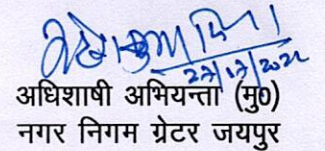 27/12/2022
अधिशाषी अभियन्ता (मु०)
नगर निगम ग्रेटर जयपुर